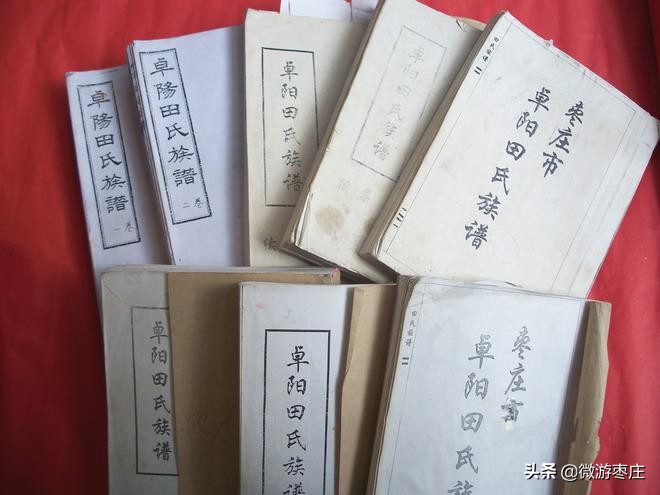 卓陽田氏族譜
一卷
卓陽田氏族譜
二卷
卓阳田氏族谱
续
卓阳田氏族谱
续
田氏族谱
枣庄市
卓阳田氏族谱
卓阳田氏族谱
卓阳田氏族谱
田氏族谱
枣庄市
卓阳田氏族谱
头条 @微游枣庄